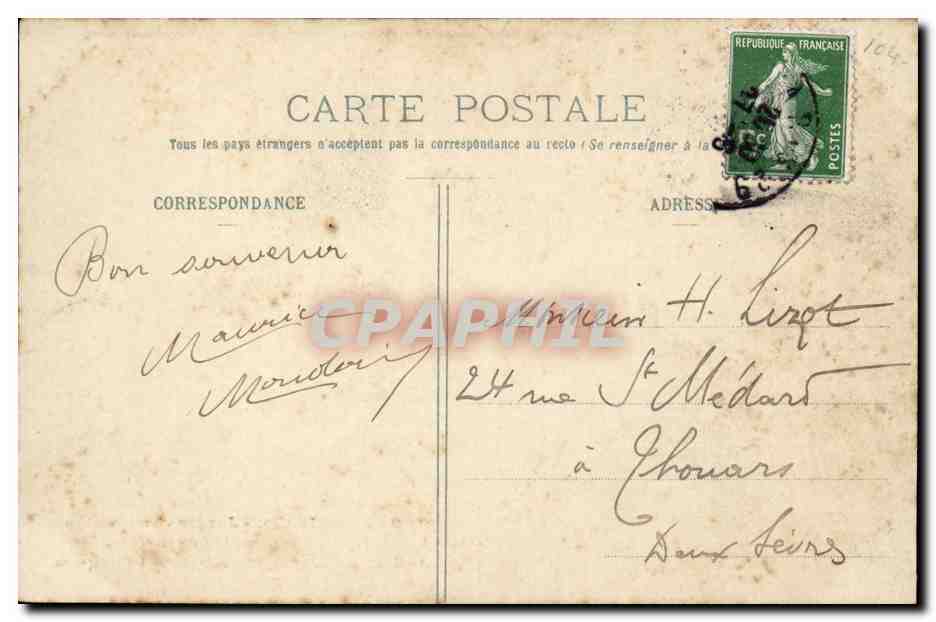 REPUBLIQUE FRANÇAISE
104
POSTES
CARTE POSTALE
Tous les pays étrangers n'acceptent pas la correspondance au recto (Se renseigner à la
CORRESPONDANCE
ADRESS
Bon souvenir
Maurice
CPAPHIL
Monsieur H. Lizot
24 rue St Médard
à Thouars
Deux Sèvres